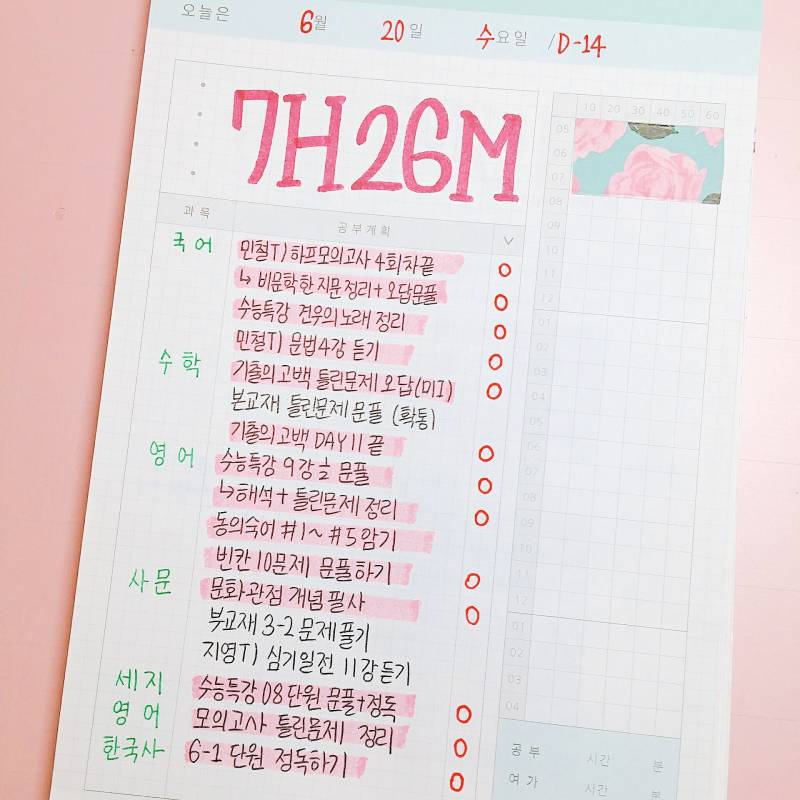 오늘은 6월 20일 수요일 / D-14
7H26M
10 20 30 40 50 60
과목 공부계획
05
06
07
08
09
10
11
12
01
02
03
04
05
06
07
08
09
10
11
12
01
02
03
04
국어 민철T) 하프모의고사 4회차 끝
↳ 비문학 한 지문 정리 + 오답문풀
수능특강 견우의 노래 정리
민철T) 문법 4강 듣기
수학 기출의 고백 틀린문제 오답(미I)
본교재 틀린문제 문풀 (확통)
기출의 고백 DAY 11 끝
영어 수능특강 9강 ½ 문풀
↳ 해석 + 틀린문제 정리
동의숙어 #1~#5 암기
빈칸 10문제 문풀하기
사문 문화 관점 개념 필사
부교재 3-2 문제 풀기
지영T) 심기일전 11강 듣기
세지 수능특강 08단원 문풀+정독
영어 모의고사 틀린문제 정리
한국사 6-1 단원 정독하기
공부 시간 분
여가 시간 분